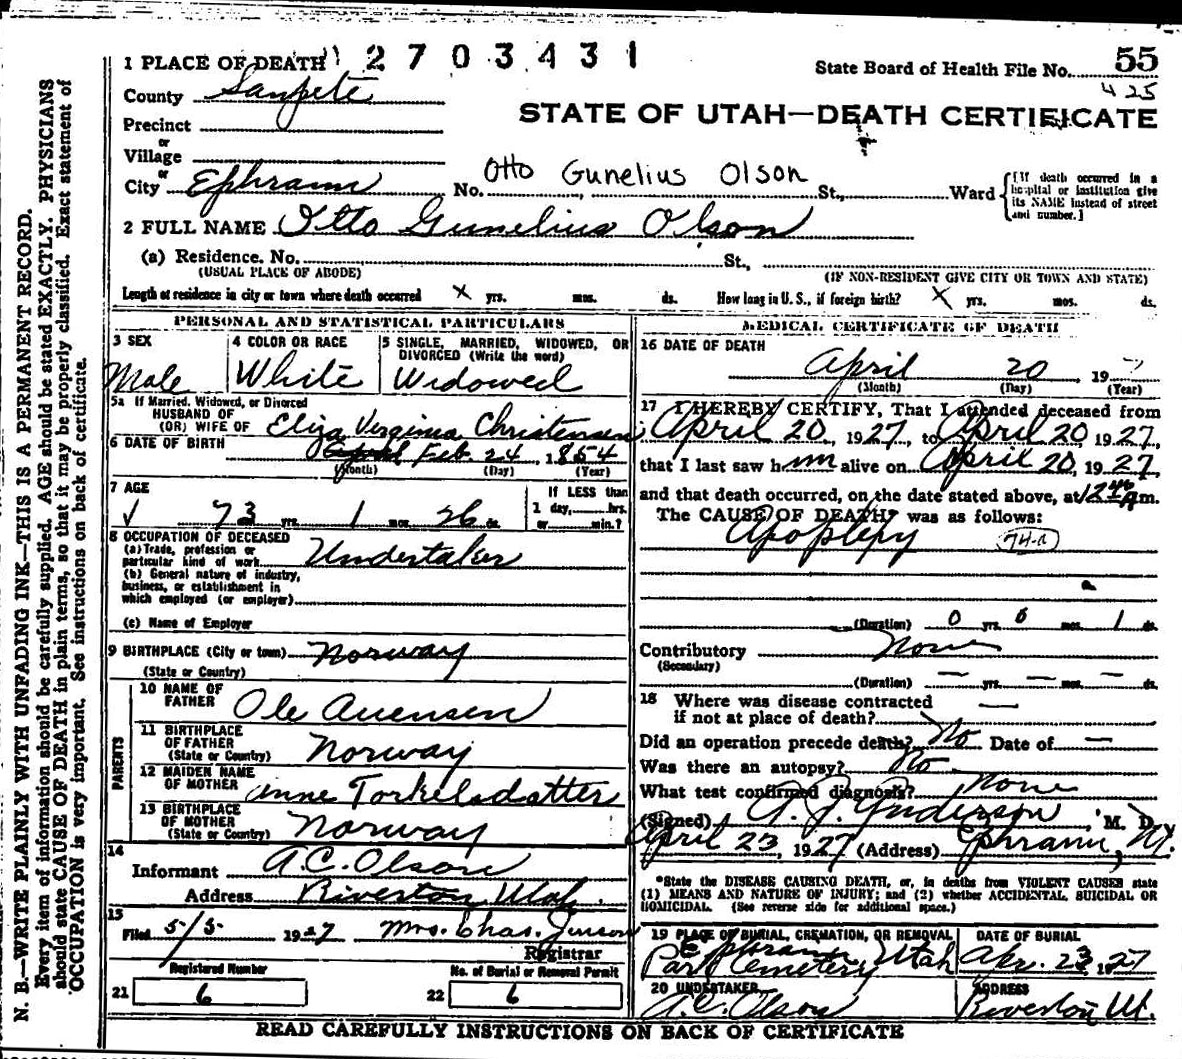 1 PLACE OF DEATH 2 7 0 3 4 3 1
State Board of Health File No. 55
425
County Sanpete
STATE OF UTAH—DEATH CERTIFICATE
Precinct
or
Village
or
City Ephraim No. Otto Gunelius Olson St., Ward
[If death occurred in a hospital or institution give its NAME instead of street and number.]
2 FULL NAME Otto Gunelius Olson
(a) Residence. No. St.,
(USUAL PLACE OF ABODE) (IF NON-RESIDENT GIVE CITY OR TOWN AND STATE)
Length of residence in city or town where death occurred X yrs. mos. ds. How long in U. S., if foreign birth? X yrs. mos. ds.
PERSONAL AND STATISTICAL PARTICULARS
3 SEX
Male
4 COLOR OR RACE
White
5 SINGLE, MARRIED, WIDOWED, OR DIVORCED (Write the word)
Widowed
5a If Married, Widowed, or Divorced
HUSBAND OF
(OR) WIFE OF Eliza Verginia Christensen
6 DATE OF BIRTH Feb. 24, 1854
(Month) (Day) (Year)
7 AGE
73 yrs. 1 mos. 26 ds.
If LESS than
1 day, hrs.
or min.?
8 OCCUPATION OF DECEASED
(a) Trade, profession or
particular kind of work Undertaker
(b) General nature of industry,
business, or establishment in
which employed (or employer)
(c) Name of Employer
9 BIRTHPLACE (City or town) Norway
(State or Country)
PARENTS
10 NAME OF
FATHER Ole Auensen
11 BIRTHPLACE
OF FATHER
(State or Country) Norway
12 MAIDEN NAME
OF MOTHER Anne Torkelsdatter
13 BIRTHPLACE
OF MOTHER
(State or Country) Norway
14
Informant A.C. Olson
Address Riverton Utah.
15
Filed 5/5- 1927 Mrs. Chas. Jenson
Registrar
Registered Number
21 6
No. of Burial or Removal Permit
22 6
MEDICAL CERTIFICATE OF DEATH
16 DATE OF DEATH
April 20, 19
(Month) (Day) (Year)
17 I HEREBY CERTIFY, That I attended deceased from
April 20, 1927, to April 20 1927,
that I last saw him alive on April 20, 1927
and that death occurred, on the date stated above, at 12 46 A m.
The CAUSE OF DEATH* was as follows:
Apoplexy 74-a
(Duration) 0 yrs. 0 mos. 1 ds.
Contributory None
(Secondary)
(Duration) — yrs. — mos. — ds.
18 Where was disease contracted
if not at place of death? —
Did an operation precede death? No Date of —
Was there an autopsy? No
What test confirmed diagnosis? None
(Signed) A. J. Anderson, M. D.
April 23, 1927 (Address) Ephraim, Ut.
*State the DISEASE CAUSING DEATH, or, in deaths from VIOLENT CAUSES state
(1) MEANS AND NATURE OF INJURY; and (2) whether ACCIDENTAL, SUICIDAL OR
HOMICIDAL. (See reverse side for additional space.)
19 PLACE OF BURIAL, CREMATION, OR REMOVAL
Ephraim
Park Cemetery, Utah
DATE OF BURIAL
Apr. 23, 1927
20 UNDERTAKER
A.C. Olson
ADDRESS
Riverton Ut.
READ CAREFULLY INSTRUCTIONS ON BACK OF CERTIFICATE
N. B.—WRITE PLAINLY WITH UNFADING INK—THIS IS A PERMANENT RECORD.
Every item of information should be carefully supplied. AGE should be stated EXACTLY. PHYSICIANS
should state CAUSE OF DEATH in plain terms, so that it may be properly classified. Exact statement of
OCCUPATION is very important. See instructions on back of certificate.